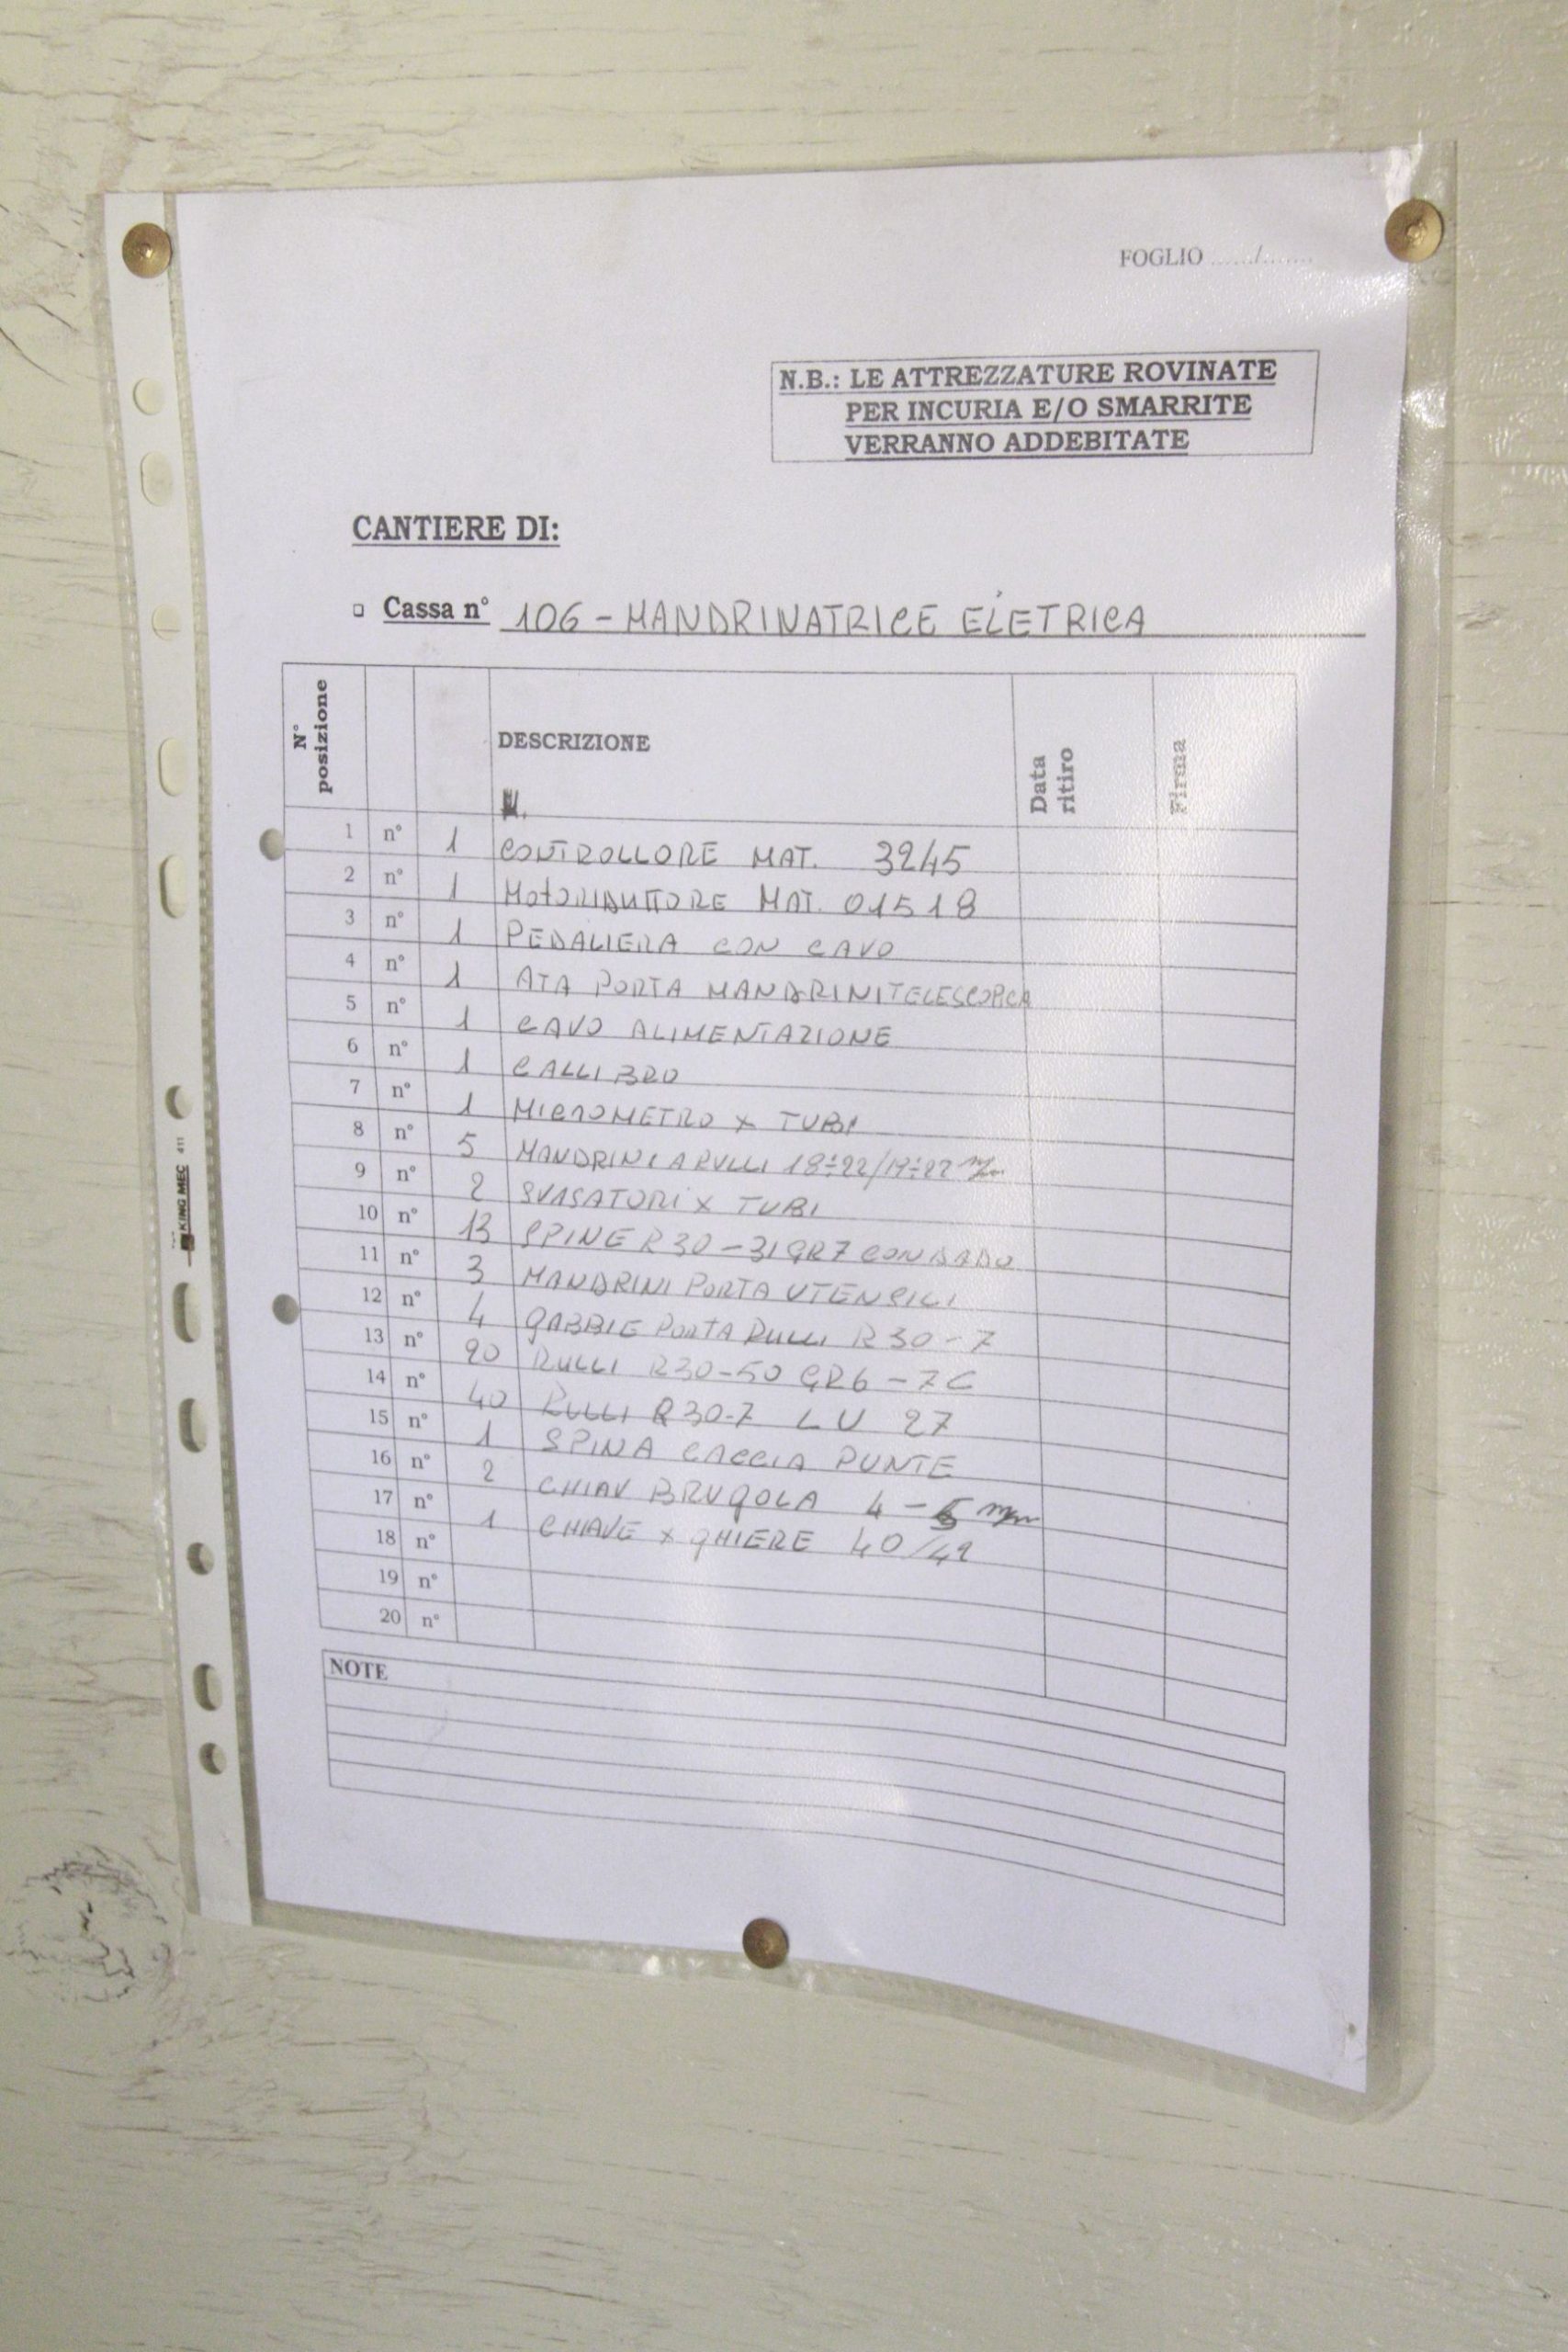 FOGLIO ....../.......
N.B.: LE ATTREZZATURE ROVINATE
PER INCURIA E/O SMARRITE
VERRANNO ADDEBITATE
CANTIERE DI:
Cassa n° 106 - MANDRINATRICE ELETRICA
N° posizione DESCRIZIONE Data ritiro Firma
1 n° 1 CONTROLLORE MAT. 3245
2 n° 1 MOTORIDUTTORE MAT. 01518
3 n° 1 PEDALIERA CON CAVO
4 n° 1 ATA PORTA MANDRINI TELESCOPICA
5 n° 1 CAVO ALIMENTAZIONE
6 n° 1 CALLIBRO
7 n° 1 MICROMETRO x TUBI
8 n° 5 MANDRINI A RULLI 18÷22/19÷22 mm
9 n° 2 SVASATORI x TUBI
10 n° 13 SPINE R30-31 GR7 CON DADO
11 n° 3 MANDRINI PORTA UTENSILI
12 n° 4 GABBIE PORTA RULLI R30-7
13 n° 90 RULLI R30-50 GR6-7C
14 n° 40 RULLI R30-7 LU 27
15 n° 1 SPINA CACCIA PUNTE
16 n° 2 CHIAV BRUGOLA 4-5 mm
17 n° 1 CHIAVE x GHIERE 40/42
18 n°
19 n°
20 n°
NOTE
KING MEC 411